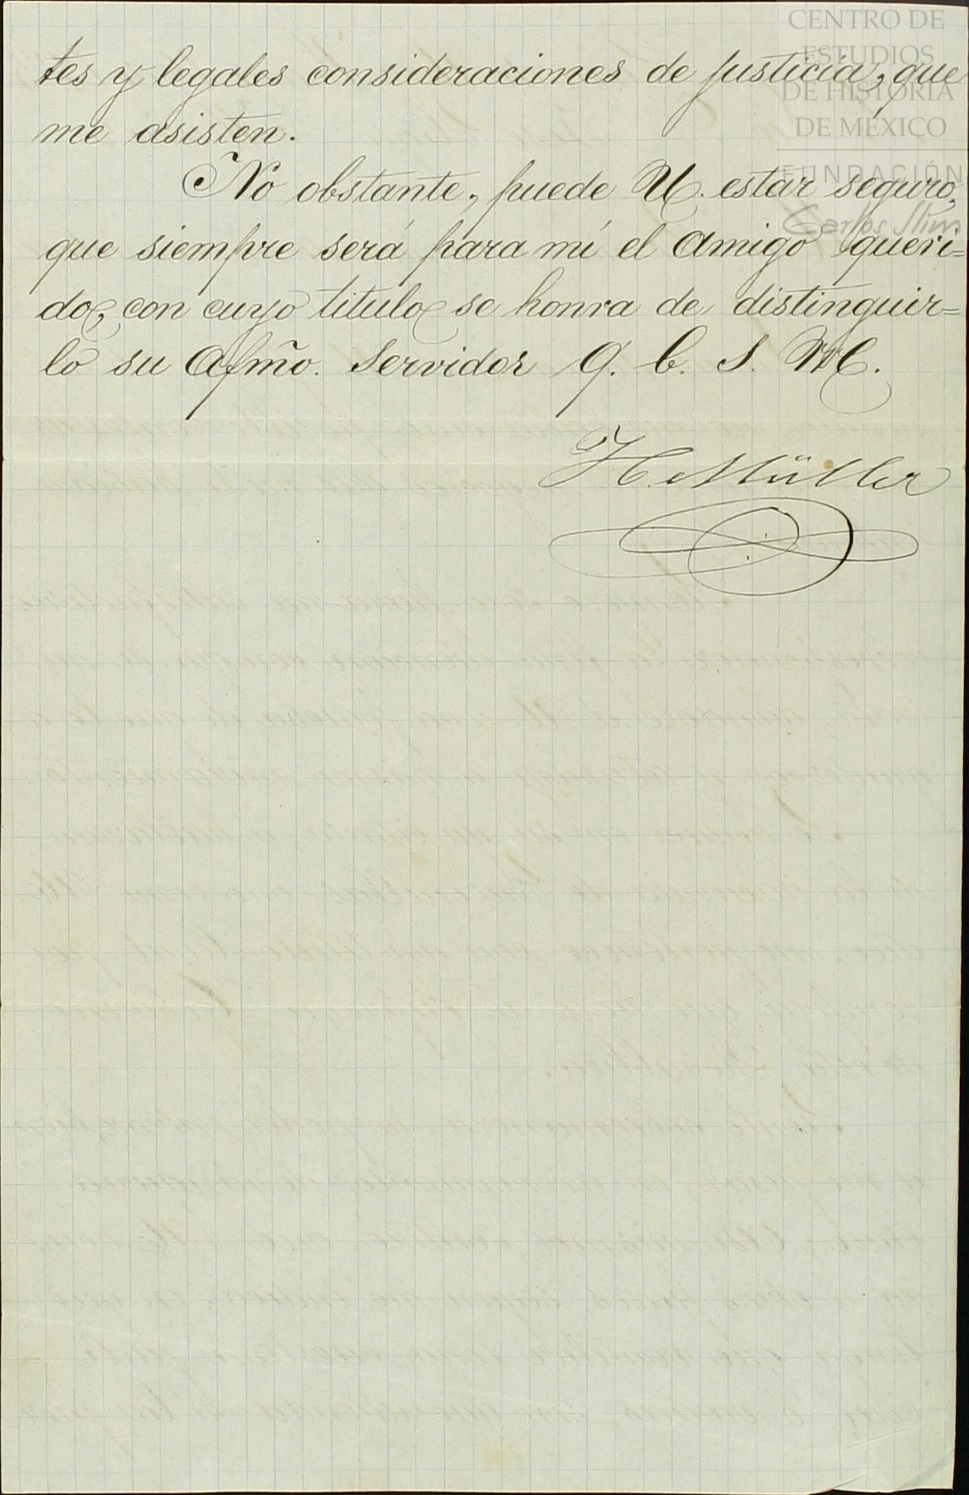 CENTRO DE
ESTUDIOS
DE HISTORIA
DE MÉXICO
FUNDACIÓN
Carlos Slim
tes y legales consideraciones de justicia, que
me asisten.
No obstante, puede U. estar seguro,
que siempre será para mí el amigo queri=
do, con cuyo titulo se honra de distinguir=
lo su Afmõ. Servidor Q. b. S. M.
H. Müller